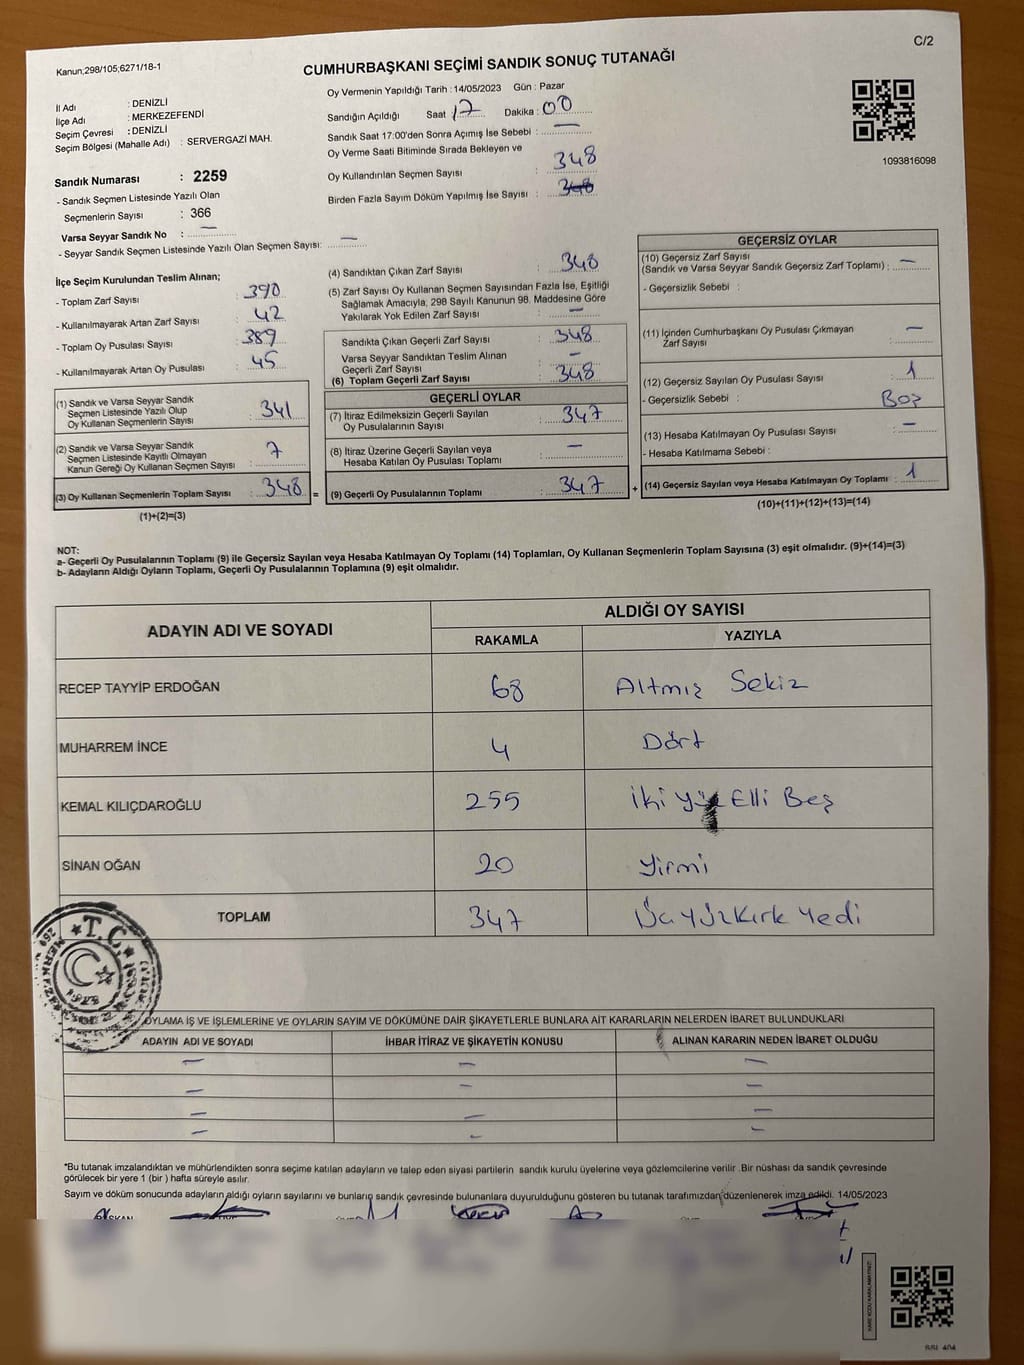 C/2
Kanun;298/105;6271/18-1
CUMHURBAŞKANI SEÇİMİ SANDIK SONUÇ TUTANAĞI
İl Adı : DENİZLİ
İlçe Adı : MERKEZEFENDİ
Seçim Çevresi : DENİZLİ
Seçim Bölgesi (Mahalle Adı) : SERVERGAZİ MAH.
Sandık Numarası : 2259
- Sandık Seçmen Listesinde Yazılı Olan
Seçmenlerin Sayısı : 366
Varsa Seyyar Sandık No : —
- Seyyar Sandık Seçmen Listesinde Yazılı Olan Seçmen Sayısı: —
Oy Vermenin Yapıldığı Tarih : 14/05/2023 Gün : Pazar
Sandığın Açıldığı Saat : 17 Dakika : 00
Sandık Saat 17:00'den Sonra Açımış İse Sebebi : —
Oy Verme Saati Bitiminde Sırada Bekleyen ve
Oy Kullandırılan Seçmen Sayısı : 348
Birden Fazla Sayım Döküm Yapılmış İse Sayısı : 348
1093816098
İlçe Seçim Kurulundan Teslim Alınan;
- Toplam Zarf Sayısı : 390
- Kullanılmayarak Artan Zarf Sayısı : 42
- Toplam Oy Pusulası Sayısı : 389
- Kullanılmayarak Artan Oy Pusulası : 45
(1) Sandık ve Varsa Seyyar Sandık
Seçmen Listesinde Yazılı Olup
Oy Kullanan Seçmenlerin Sayısı : 341
(2) Sandık ve Varsa Seyyar Sandık
Seçmen Listesinde Kayıtlı Olmayan
Kanun Gereği Oy Kullanan Seçmen Sayısı : 7
(3) Oy Kullanan Seçmenlerin Toplam Sayısı : 348 =
(1)+(2)=(3)
(4) Sandıktan Çıkan Zarf Sayısı : 348
(5) Zarf Sayısı Oy Kullanan Seçmen Sayısından Fazla İse, Eşitliği
Sağlamak Amacıyla, 298 Sayılı Kanunun 98. Maddesine Göre
Yakılarak Yok Edilen Zarf Sayısı : —
Sandıkta Çıkan Geçerli Zarf Sayısı : 348
Varsa Seyyar Sandıktan Teslim Alınan
Geçerli Zarf Sayısı : —
(6) Toplam Geçerli Zarf Sayısı : 348
GEÇERLİ OYLAR
(7) İtiraz Edilmeksizin Geçerli Sayılan
Oy Pusulalarının Sayısı : 347
(8) İtiraz Üzerine Geçerli Sayılan veya
Hesaba Katılan Oy Pusulası Toplamı : —
(9) Geçerli Oy Pusulalarının Toplamı : 347 +
GEÇERSİZ OYLAR
(10) Geçersiz Zarf Sayısı
(Sandık ve Varsa Seyyar Sandık Geçersiz Zarf Toplamı) : —
- Geçersizlik Sebebi :
(11) İçinden Cumhurbaşkanı Oy Pusulası Çıkmayan
Zarf Sayısı : —
(12) Geçersiz Sayılan Oy Pusulası Sayısı : 1
- Geçersizlik Sebebi : Boş
(13) Hesaba Katılmayan Oy Pusulası Sayısı : —
- Hesaba Katılmama Sebebi :
(14) Geçersiz Sayılan veya Hesaba Katılmayan Oy Toplamı : 1
(10)+(11)+(12)+(13)=(14)
NOT:
a- Geçerli Oy Pusulalarının Toplamı (9) ile Geçersiz Sayılan veya Hesaba Katılmayan Oy Toplamı (14) Toplamları, Oy Kullanan Seçmenlerin Toplam Sayısına (3) eşit olmalıdır. (9)+(14)=(3)
b- Adayların Aldığı Oyların Toplamı, Geçerli Oy Pusulalarının Toplamına (9) eşit olmalıdır.
ADAYIN ADI VE SOYADI ALDIĞI OY SAYISI
RAKAMLA YAZIYLA
RECEP TAYYİP ERDOĞAN 68 Altmış Sekiz
MUHARREM İNCE 4 Dört
KEMAL KILIÇDAROĞLU 255 İki Yüz Elli Beş
SİNAN OĞAN 20 Yirmi
TOPLAM 347 Üç yüz Kırk Yedi
T.C.
OYLAMA İŞ VE İŞLEMLERİNE VE OYLARIN SAYIM VE DÖKÜMÜNE DAİR ŞİKAYETLERLE BUNLARA AİT KARARLARIN NELERDEN İBARET BULUNDUKLARI
ADAYIN ADI VE SOYADI İHBAR İTİRAZ VE ŞİKAYETİN KONUSU ALINAN KARARIN NEDEN İBARET OLDUĞU
— — —
— — —
— — —
— — —
*Bu tutanak imzalandıktan ve mühürlendikten sonra seçime katılan adayların ve talep eden siyasi partilerin sandık kurulu üyelerine veya gözlemcilerine verilir .Bir nüshası da sandık çevresinde
görülecek bir yere 1 (bir ) hafta süreyle asılır.
Sayım ve döküm sonucunda adayların aldığı oyların sayılarını ve bunların sandık çevresinde bulunanlara duyurulduğunu gösteren bu tutanak tarafımızdan düzenlenerek imza edildi. 14/05/2023